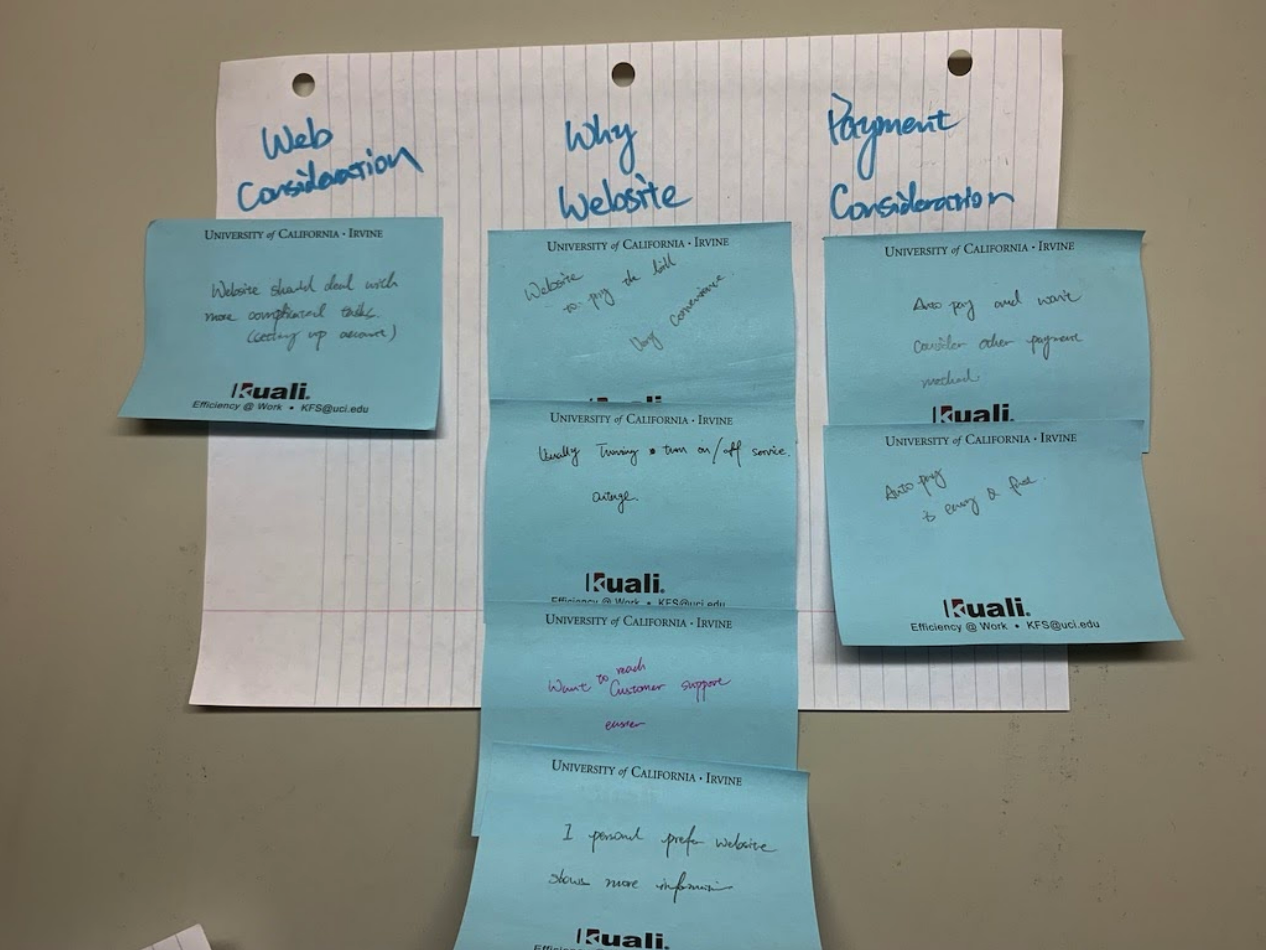 Web
Consideration
UNIVERSITY of CALIFORNIA • IRVINE
Website should deal with
more complicated tasks.
(setting up account)
Kuali.
Efficiency @ Work • KFS@uci.edu
Why
Website
UNIVERSITY of CALIFORNIA • IRVINE
Website
to pay the bill
Very convenience.
Kuali.
UNIVERSITY of CALIFORNIA • IRVINE
Usually Turning turn on/off service.
outage.
Kuali.
Efficiency @ Work • KFS@uci.edu
UNIVERSITY of CALIFORNIA • IRVINE
Want to reach
Customer support
easier
UNIVERSITY of CALIFORNIA • IRVINE
I personal prefer website
shows more information
Kuali.
Payment
Consideration
UNIVERSITY of CALIFORNIA • IRVINE
Auto pay and won't
consider other payment
method.
Kuali.
UNIVERSITY of CALIFORNIA • IRVINE
Auto pay
is easy &
Kuali.
Efficiency @ Work • KFS@uci.edu